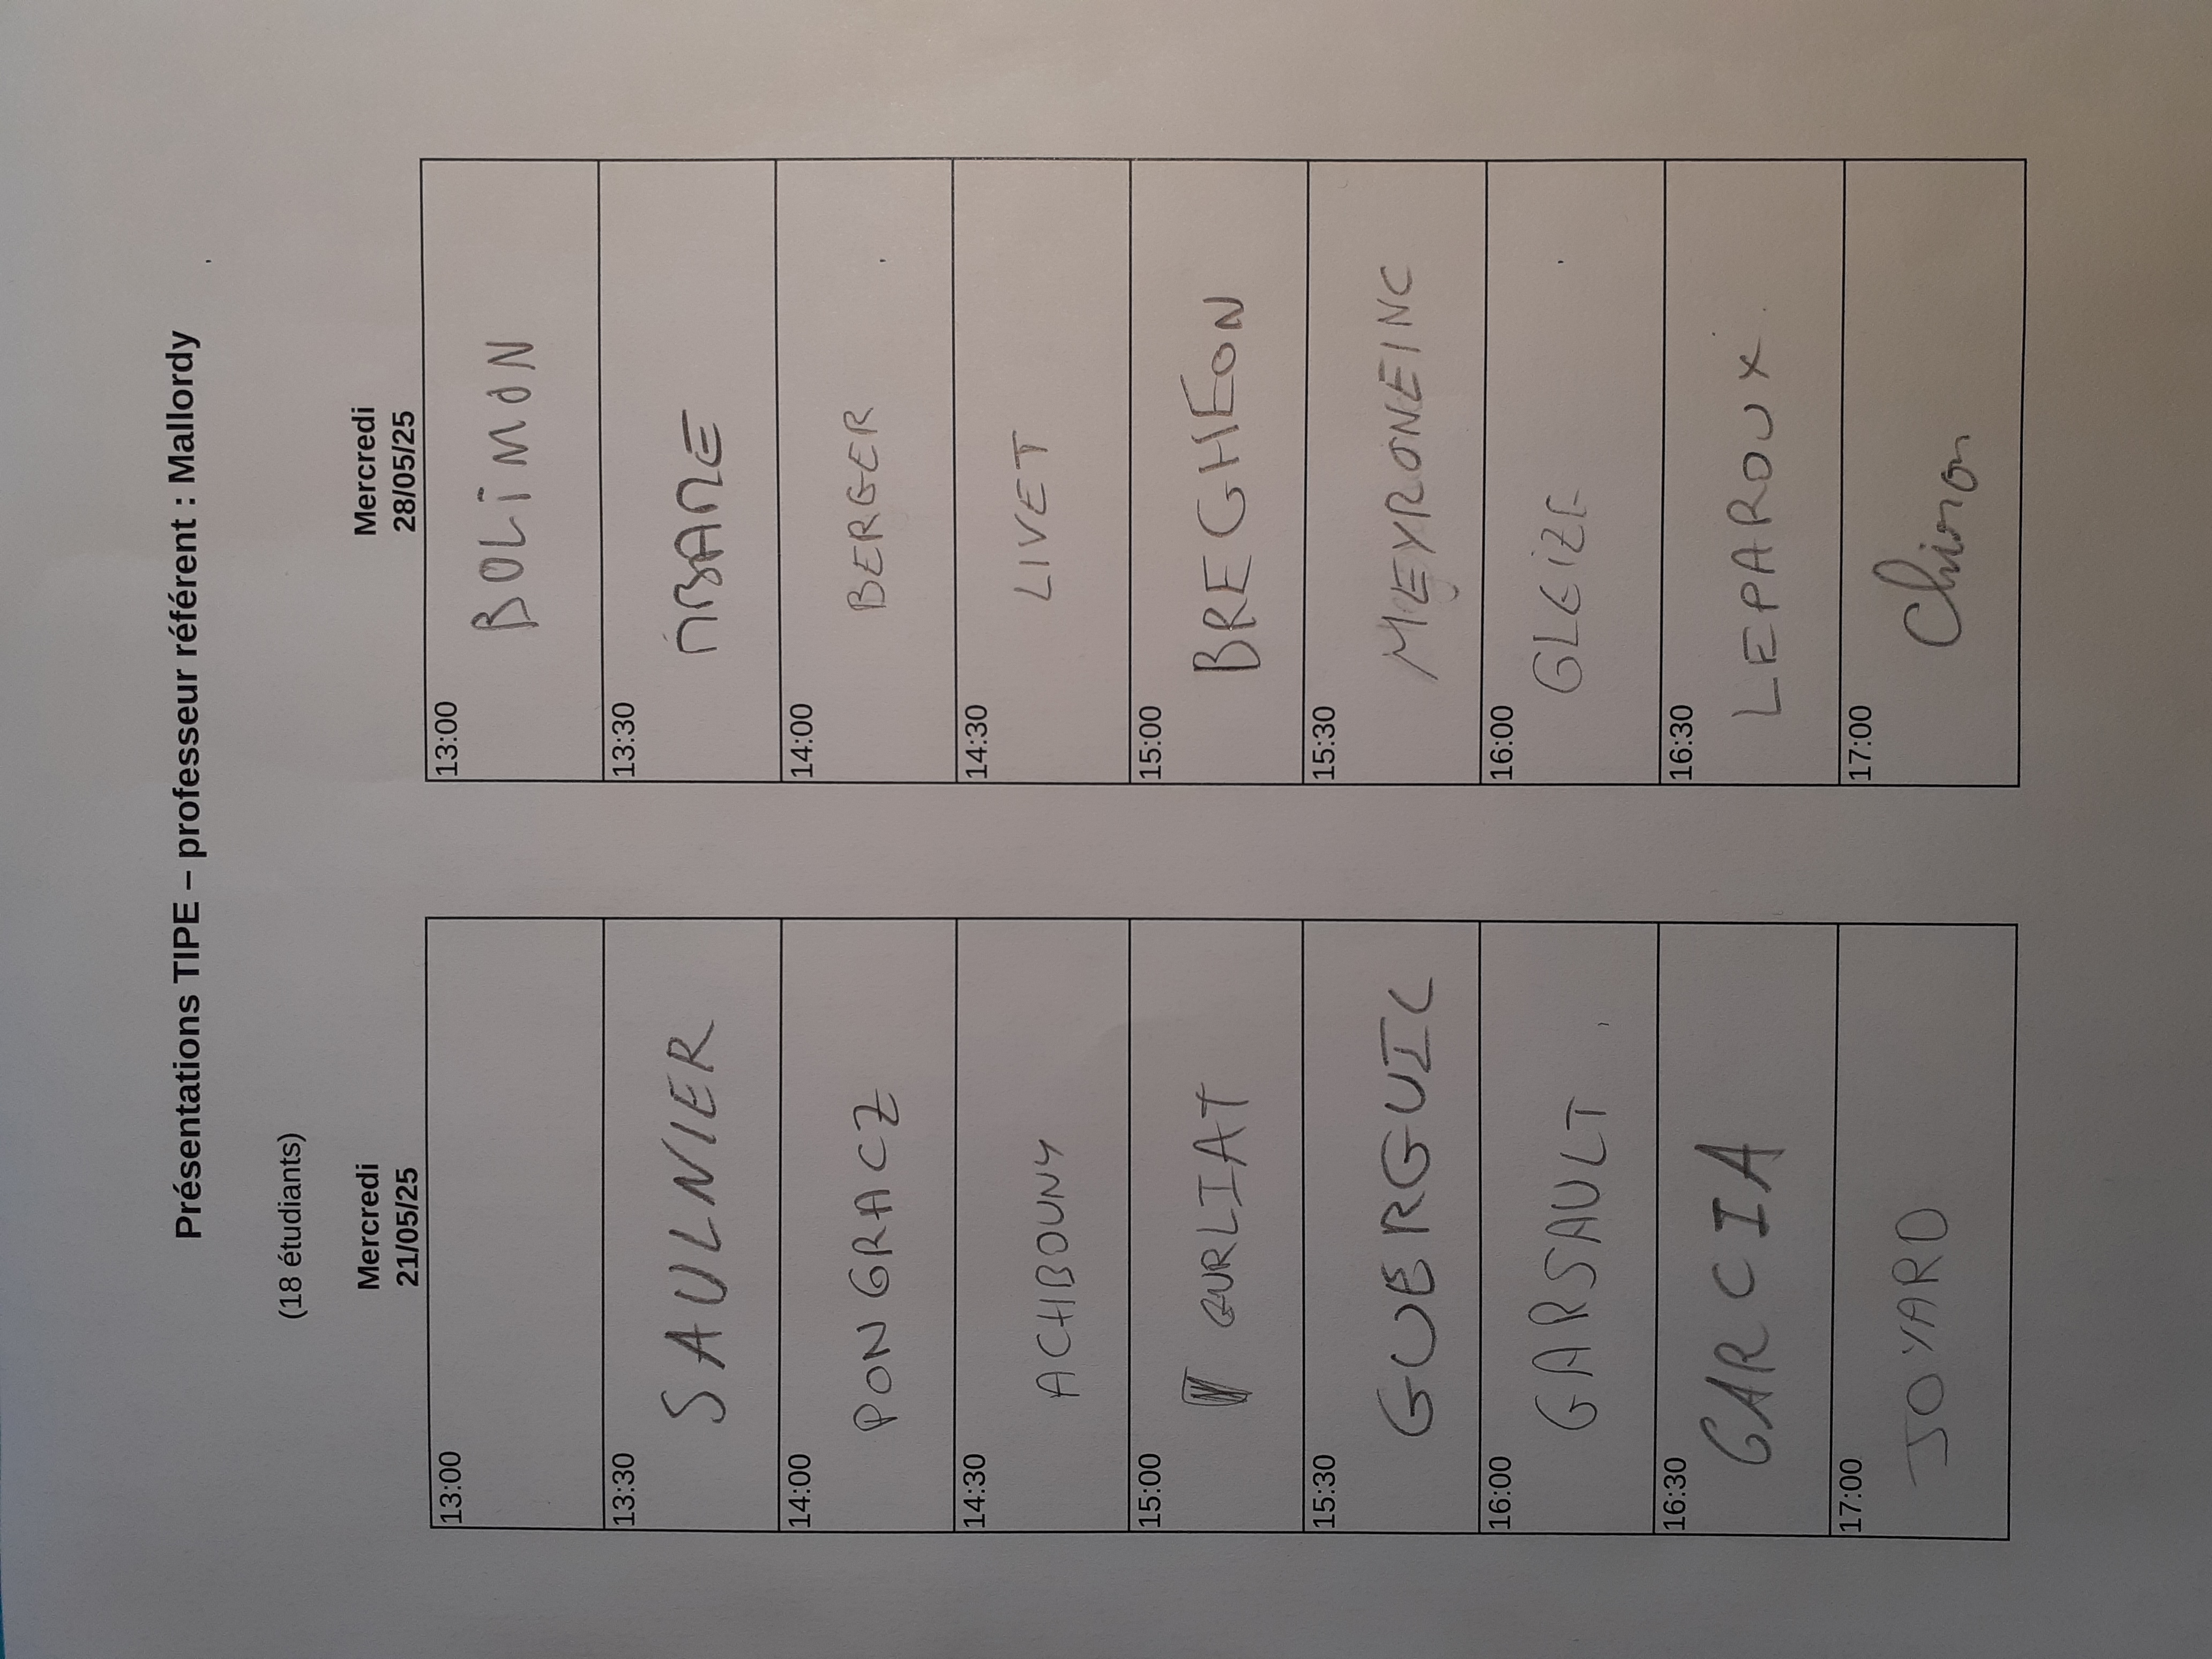 Présentations TIPE – professeur référent : Mallordy
(18 étudiants)
Mercredi
21/05/25
13:00
13:30
SAULNIER
14:00
PONGRACZ
14:30
ACHIBOUNY
15:00
GURLIAT
15:30
GUERGUIL
16:00
GARSAULT
16:30
GARCIA
17:00
JOYARD
Mercredi
28/05/25
13:00
BOLIMON
13:30
14:00
BERGER
14:30
LIVET
15:00
BREGHEON
15:30
MEYRONEINC
16:00
GLEIZE
16:30
LEPAROUX
17:00
Chiron